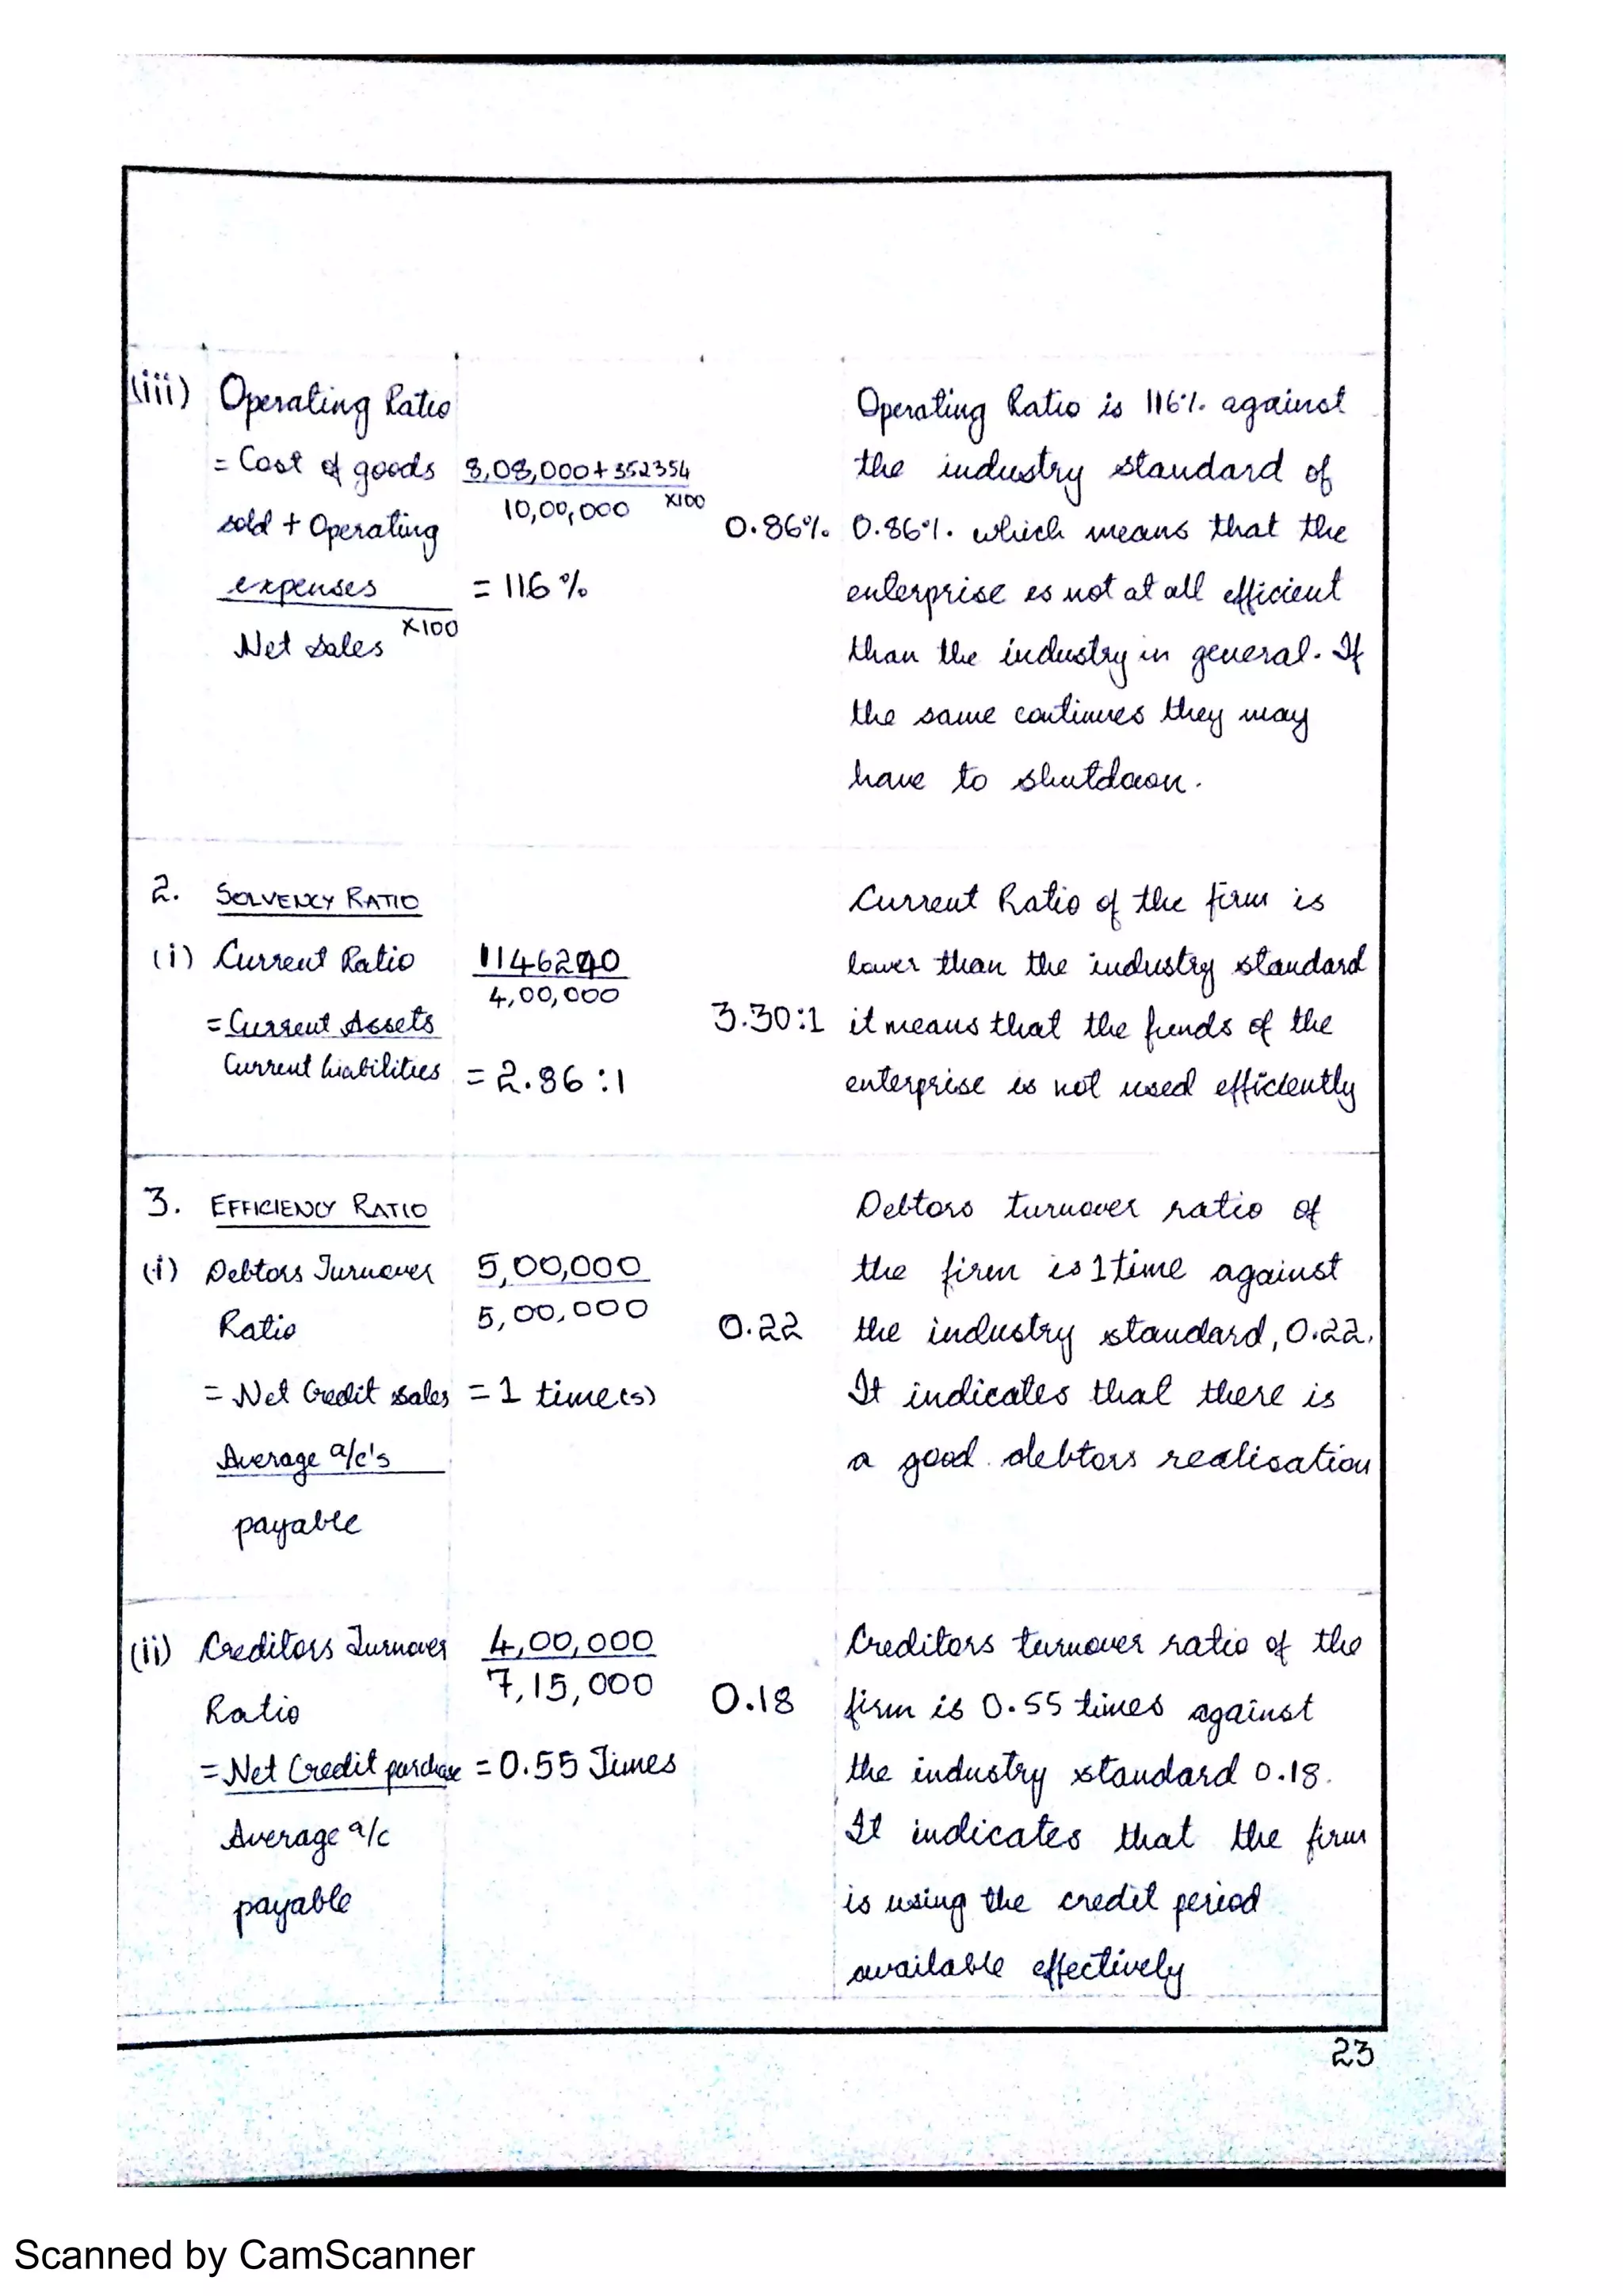 (iii) Operating Ratio
= Cost of goods
sold + Operating
expenses
Net Sales ×100
8,08,000+352354
10,00,000 ×100
= 116%
0.86%
Operating Ratio is 116% against
the industry standard of
0.86%. which means that the
enterprise is not at all efficient
than the industry in general. If
the same continues they may
have to shutdown.
2. SOLVENCY RATIO
(i) Current Ratio
= Current Assets
Current liabilities
1146240
4,00,000
= 2.86:1
3.30:1
Current Ratio of the firm is
lower than the industry standard
it means that the funds of the
enterprise is not used efficiently
3. EFFICIENCY RATIO
(i) Debtors Turnover
Ratio
= Net Credit sales
Average a/c's
payable
5,00,000
5,00,000
= 1 time(s)
0.22
Debtors turnover ratio of
the firm is 1 time against
the industry standard, 0.22.
It indicates that there is
a good debtors realisation
(ii) Creditors Turnover
Ratio
= Net Credit purchase
Average a/c
payable
4,00,000
7,15,000
= 0.55 Times
0.18
Creditors turnover ratio of the
firm is 0.55 times against
the industry standard 0.18.
It indicates that the firm
is using the credit period
available effectively
23
Scanned by CamScanner